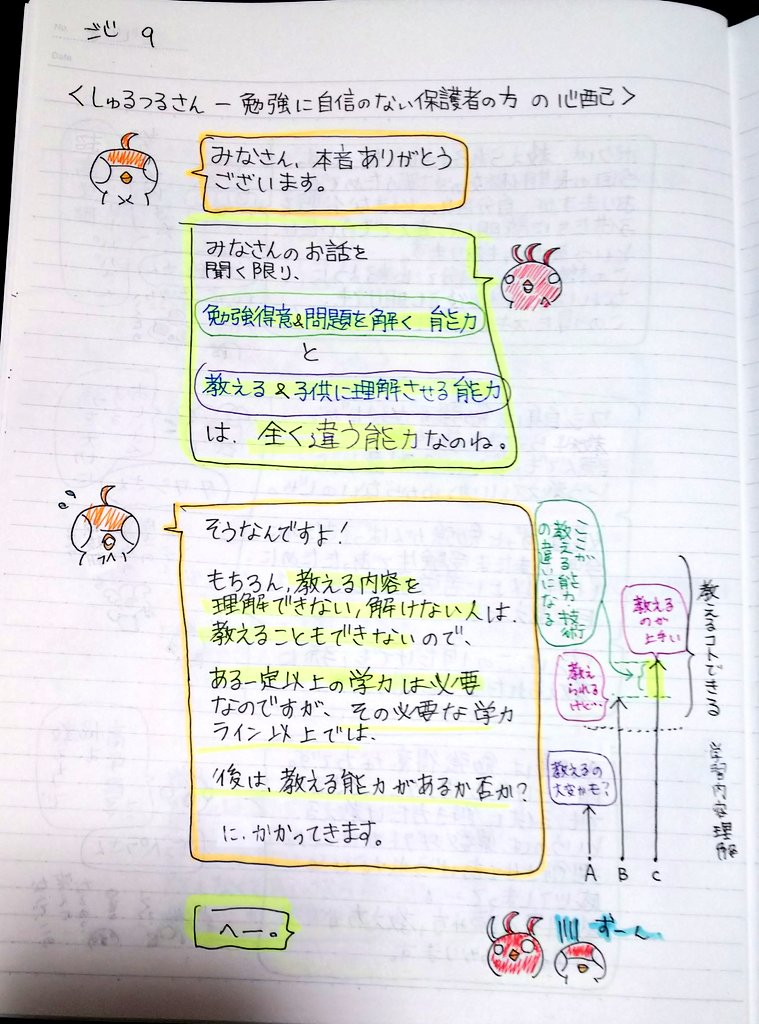 No.
ジジ 9
Date
<しゅるつるさん ー 勉強に自信のない保護者の方 の 心配>
みなさん、本音ありがとう
ございます。
みなさんのお話を
聞く限り、
勉強得意&問題を解く 能力
と
教える&子供に理解させる能力
は、全く違う能力なのね。
そうなんですよ!
もちろん、教える内容を
理解できない,解けない人は、
教えることもできないので、
ある一定以上の学力は必要
なのですが、その必要な学力
ライン以上では、
後は、教える能力があるか否か?
に、かかってきます。
ここが
教える能力・技術
の違いになる
教えるのが
上手い
教え
られる
けど…
教えるの
大変かも?
教えるコトできる
学習内容理解
A B C
へー。
ずーん